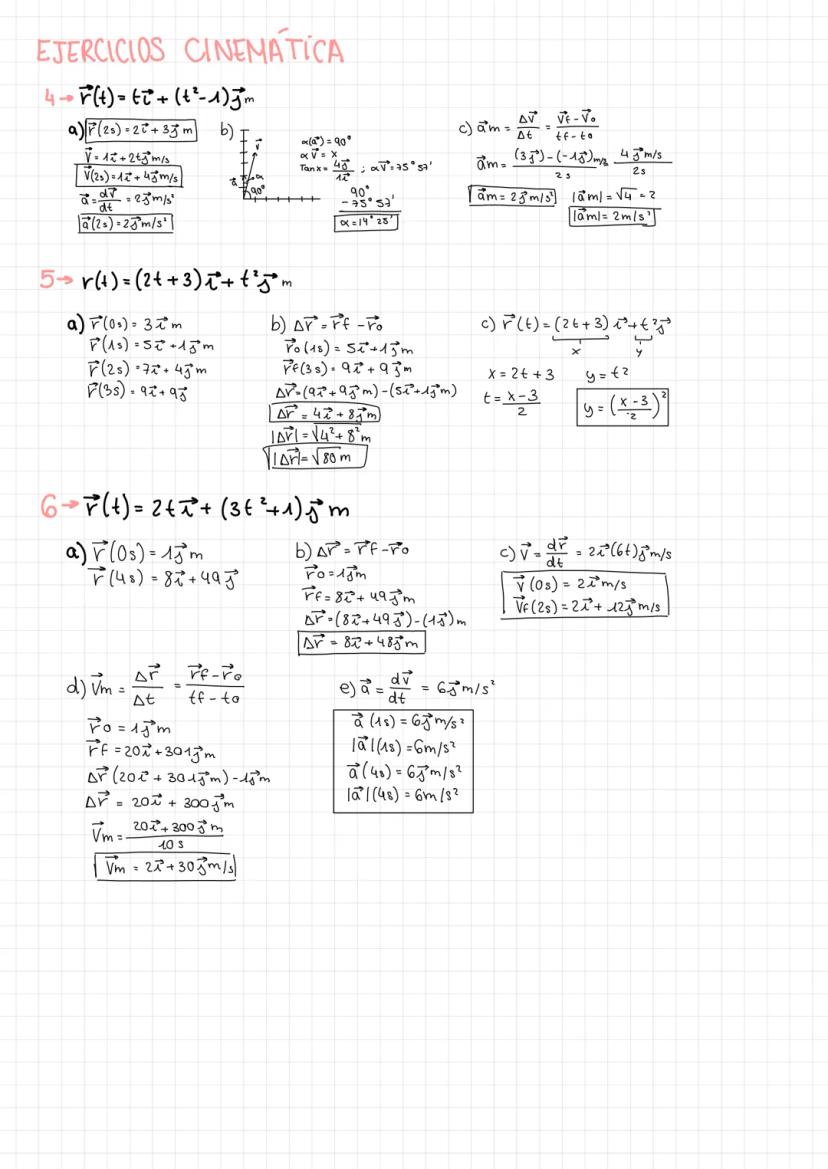 EJERCICIOS CINEMÁTICA
4→ r⃗(t) = ti⃗ + (t²-1)j⃗ m
a) r⃗(2s) = 2i⃗ + 3j⃗ m
V⃗ = 1i⃗ + 2tj⃗ m/s
V⃗(2s) = 1i⃗ + 4j⃗ m/s
a⃗ = dv⃗/dt = 2j⃗ m/s²
a⃗(2s) = 2j⃗ m/s²
b)
v⃗
a⃗
α
90°
α(a⃗) = 90°
α V⃗ = x
Tan x = 4j⃗/1i⃗ ; α V⃗ = 75° 57'
90°
- 75° 57'
α = 14° 25'
c) a⃗m = ΔV⃗/Δt = V⃗f - V⃗o/tf - to
a⃗m = (3j⃗) - (-1j⃗) m/s/2s 4j⃗ m/s/2s
a⃗m = 2j⃗ m/s²
|a⃗m| = √4 = 2
|a⃗m| = 2m/s²
5→ r(t) = (2t + 3)i⃗ + t²j⃗ m
a) r⃗(0s) = 3i⃗ m
r⃗(1s) = 5i⃗ + 1j⃗ m
r⃗(2s) = 7i⃗ + 4j⃗ m
r⃗(3s) = 9i⃗ + 9j⃗
b) Δr⃗ = r⃗f - r⃗o
r⃗o(1s) = 5i⃗ + 1j⃗ m
r⃗f(3s) = 9i⃗ + 9j⃗ m
Δr⃗ = (9i⃗ + 9j⃗ m) - (5i⃗ + 1j⃗ m)
Δr⃗ = 4i⃗ + 8j⃗ m
|Δr⃗| = √4² + 8² m
|Δr⃗| = √80 m
c) r⃗(t) = (2t + 3)i⃗ + t²j⃗
x y
x = 2t + 3 y = t²
t = x - 3/2
y = (x - 3/2)²
6→ r⃗(t) = 2ti⃗ + (3t² + 1)j⃗ m
a) r⃗(0s) = 1j⃗ m
r⃗(4s) = 8i⃗ + 49j⃗
b) Δr⃗ = r⃗f - r⃗o
r⃗o = 1j⃗ m
r⃗f = 8i⃗ + 49j⃗ m
Δr⃗ = (8i⃗ + 49j⃗) - (1j⃗) m
Δr⃗ = 8i⃗ + 48j⃗ m
c) V⃗ = dr⃗/dt = 2i⃗(6t)j⃗ m/s
V⃗(0s) = 2i⃗ m/s
V⃗f(2s) = 2i⃗ + 12j⃗ m/s
d) V⃗m = Δr⃗/Δt = r⃗f - r⃗o/tf - to
r⃗o = 1j⃗ m
r⃗f = 20i⃗ + 301j⃗ m
Δr⃗ (20i⃗ + 301j⃗ m) - 1j⃗ m
Δr⃗ = 20i⃗ + 300j⃗ m
V⃗m = 20i⃗ + 300j⃗ m/10s
V⃗m = 2i⃗ + 30j⃗ m/s
e) a⃗ = dv⃗/dt = 6j⃗ m/s²
a⃗ (1s) = 6j⃗ m/s²
|a⃗|(1s) = 6m/s²
a⃗(4s) = 6j⃗ m/s²
|a⃗|(4s) = 6m/s²